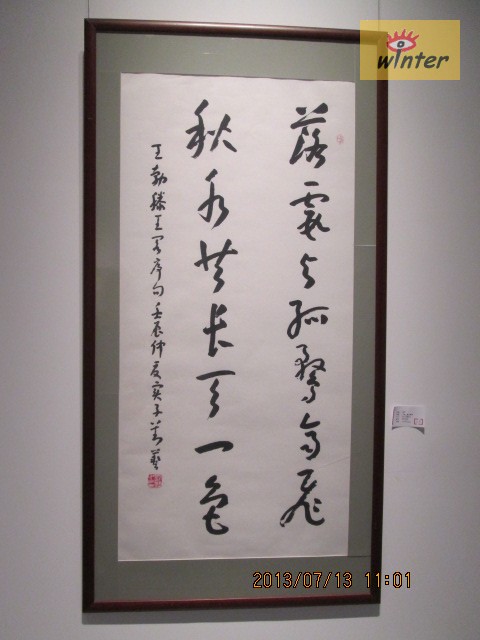 落霞与孤鹜齐飞
秋水共长天一色
王勃滕王阁序句 壬辰仲夏
winter
2013/07/13 11:01